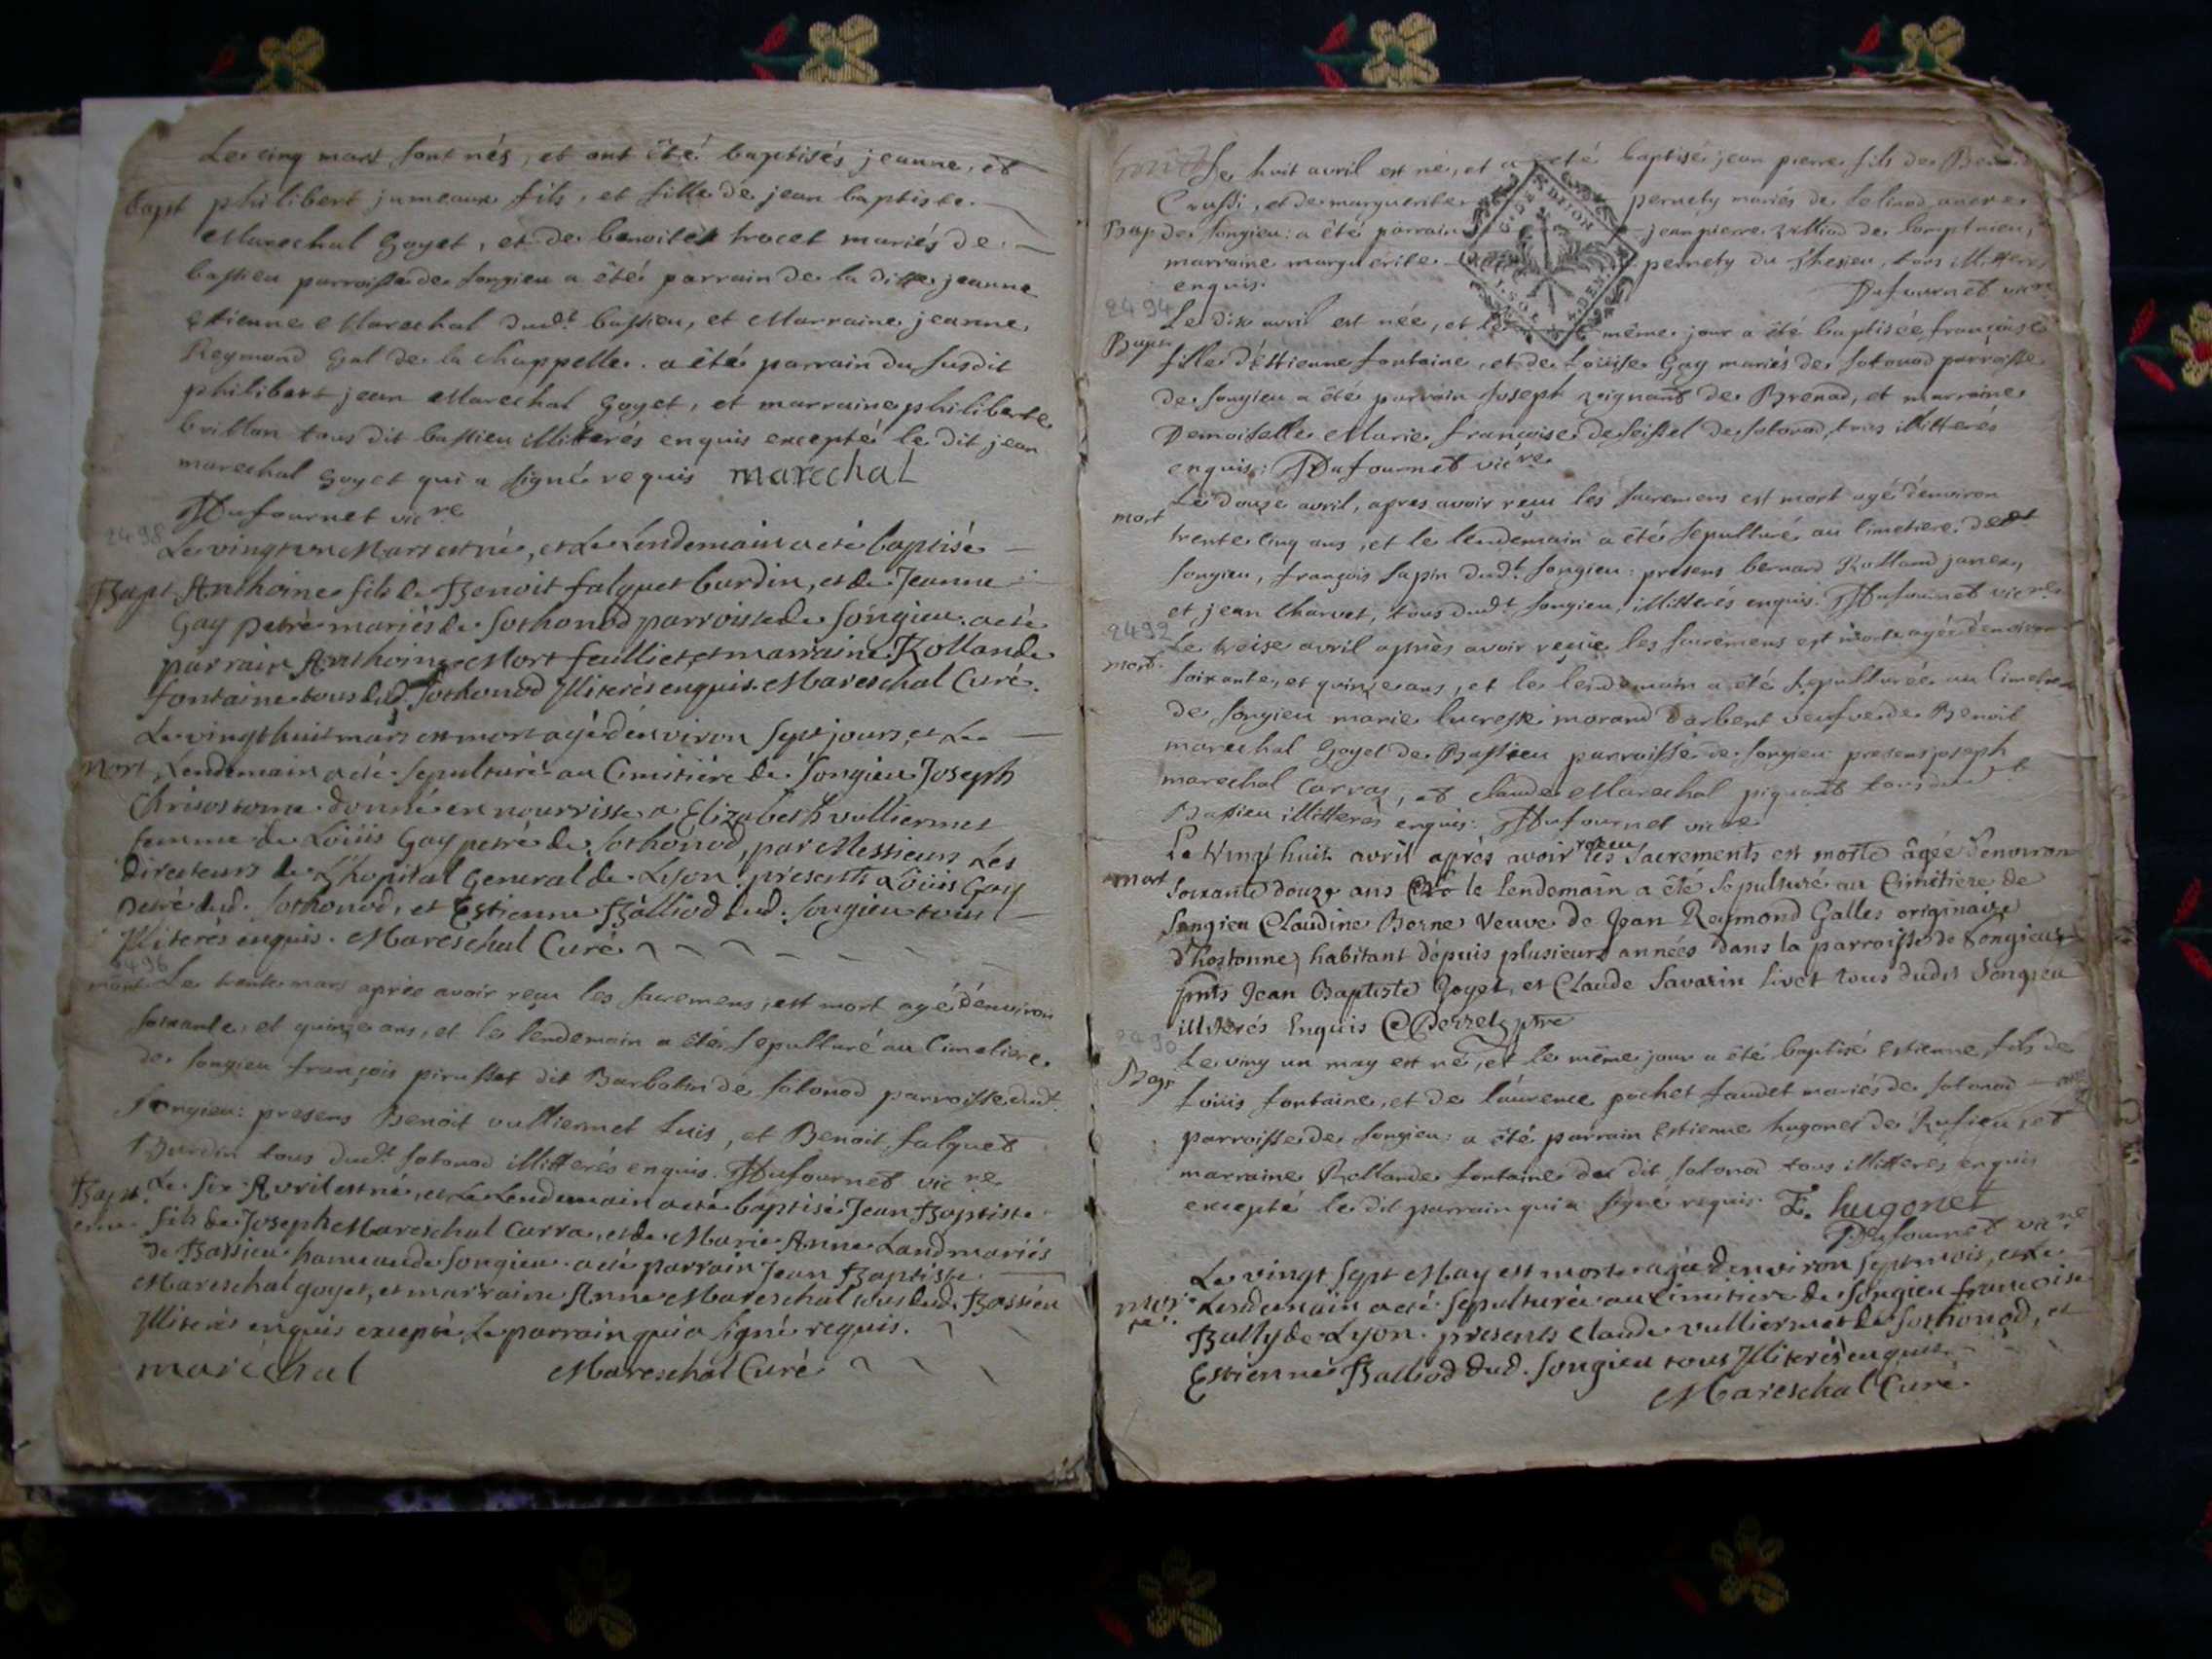 Le cinq mars sont nés, et ont été baptisés jeanne, et
bapt philibert jumeaux fils, et fille de jean baptiste
Marechal Goyet, et de benoite trocet mariés de
bassieu parroisse de songieu a été parrain de la ditte jeanne
Etienne Marechal dudt. bassieu, et Marraine jeanne
Reymond Gal de la chappelle. a été parrain du susdit
philibert jean Marechal Goyet, et marraine philiberte
brillan tous dit bassieu illiterés enquis excepté le dit jean
marechal Goyet qui a signé requis marechal
Dufournet vicre
2498
Le vingt un Mars est né, et Le Lendemain a eté baptisé
Bapt Anthoine fils de Benoit falquet burdin, et de Jeanne
Gay petré mariés de sothonod parroisse de songieu. a eté
parrain Anthoine Mort feulliet, et marraine Rollande
fontaine tous dud. Sothonod Illiterés enquis. Mareschal Curé.
Le vingt huit mars est mort agé d'environ sept jours, et Le
Mort Lendemain a eté sepulturé au Cimitiére de Songieu Joseph
Chrisostome donné en nourrisse a Elizabeth vulliermet
femme de Loüis Gay petré de Sothonod, par Messieurs Les
Directeurs de L'hopital General de Lyon. présents Loüis Gay
petré dud. Sothonod, et Estienne Balliod dud. Songieu tous
Illiterés enquis. Mareschal Curé
2496
mort Le trente mars après avoir reçu les sacremens, est mort agé d'environ
soixante, et quinze ans, et le lendemain a été sepulturé au Cimetiere
de songieu françois pirasset dit Barbatin de sotonod parroisse dudt.
songieu: presens Benoit vulliermet Luis, et Benoit falquet
Burdin tous dudt. sotonod illitterés enquis. Dufournet vicre
Bapt. Le six Avril est né, et Le Lendemain a eté baptisé Jean Baptiste
fils de Joseph Mareschal Carra, et de Marie Anne Land mariés
de Bassieu hameau de songieu. a eté parrain Jean Baptiste
Mareschal goyet, et marraine Anne Mareschal tous dud. Bassieu
Illiterés enquis excepté Le parrain qui a signé requis.
maréchal Mareschal Curé
Le huit avril est né, et a été baptisé jean pierre fils de
Crussi, et de marguerite pernety mariés de
Bap de songieu: a été parrain jean pierre de
marraine marguerite pernety du tous illitterés
enquis. Dufournet vicre
2494
Le dix avril est née, et le même jour a été baptisée françoise
Bapt. fille d'Estienne fontaine, et de Loüise Gay mariés de sotonod parroisse
de songieu a été parrain joseph vignant de Brenod, et marraine
Demoiselle Marie françoise de seissel de sotonod, tous illitterés
enquis: Dufournet vicre
Le douze avril, apres avoir reçu les sacremens est mort agé d'environ
mort trente cinq ans, et le lendemain a été sepulturé au Cimetiere dudt
songieu, françois sapin dudt. songieu: presens bernard Rolland janex,
et jean Charvet, tous dudt. songieu, illitterés enquis. Dufournet vicre
2492
Le treise avril après avoir reçue les sacremens est morte agée d'environ
mort. soixante, et quinze ans, et le lendemain a été sepulturée au Cimetiere
de songieu marie lucresse morand d'arbent veufve de Benoit
marechal Goyet de Bassieu parroisse de songieu: presens joseph
marechal Carraz, et claude Marechal pignant tous dudt
Bassieu illitterés enquis: Dufournet vicre
Le Vingt huit avril après avoir recu les Sacrements est morte âgée d'environ
mort soixante douze ans Et le lendemain a été Sepulturé au Cimitiere de
Songieu Claudine Borne Veuve de Jean Reymond Galles originaire
d'hostonne, habitant dépuis plusieurs années dans la parroisse de Songieu
pnts Jean Baptiste Goyet, et Claude Savarin livet tous dudit Songieu
illiterés Enquis Perret ptre
2490
Le ving un may est né, et le même jour a été baptisé Estienne fils de
Bapt Loüis fontaine, et de laurence pochet faudet mariés de sotonod
parroisse de songieu: a été parrain Estienne hugonet de Rufieu, et
marraine Rollande fontaine du dit sotonod tous illitterés enquis
excepté le dit parrain qui a signé requis. E. hugonet
Dufournet vicre
Le vingt sept May est morte agée d'environ sept mois, et Le
Mort Lendemain a eté sepulturée au Cimitiere de Songieu françoise
Bally de Lyon. presents Claude vulliermet de Sothonod, et
Estienne Balliod dud. Songieu tous Illiterés enquis
Mareschal Curé.